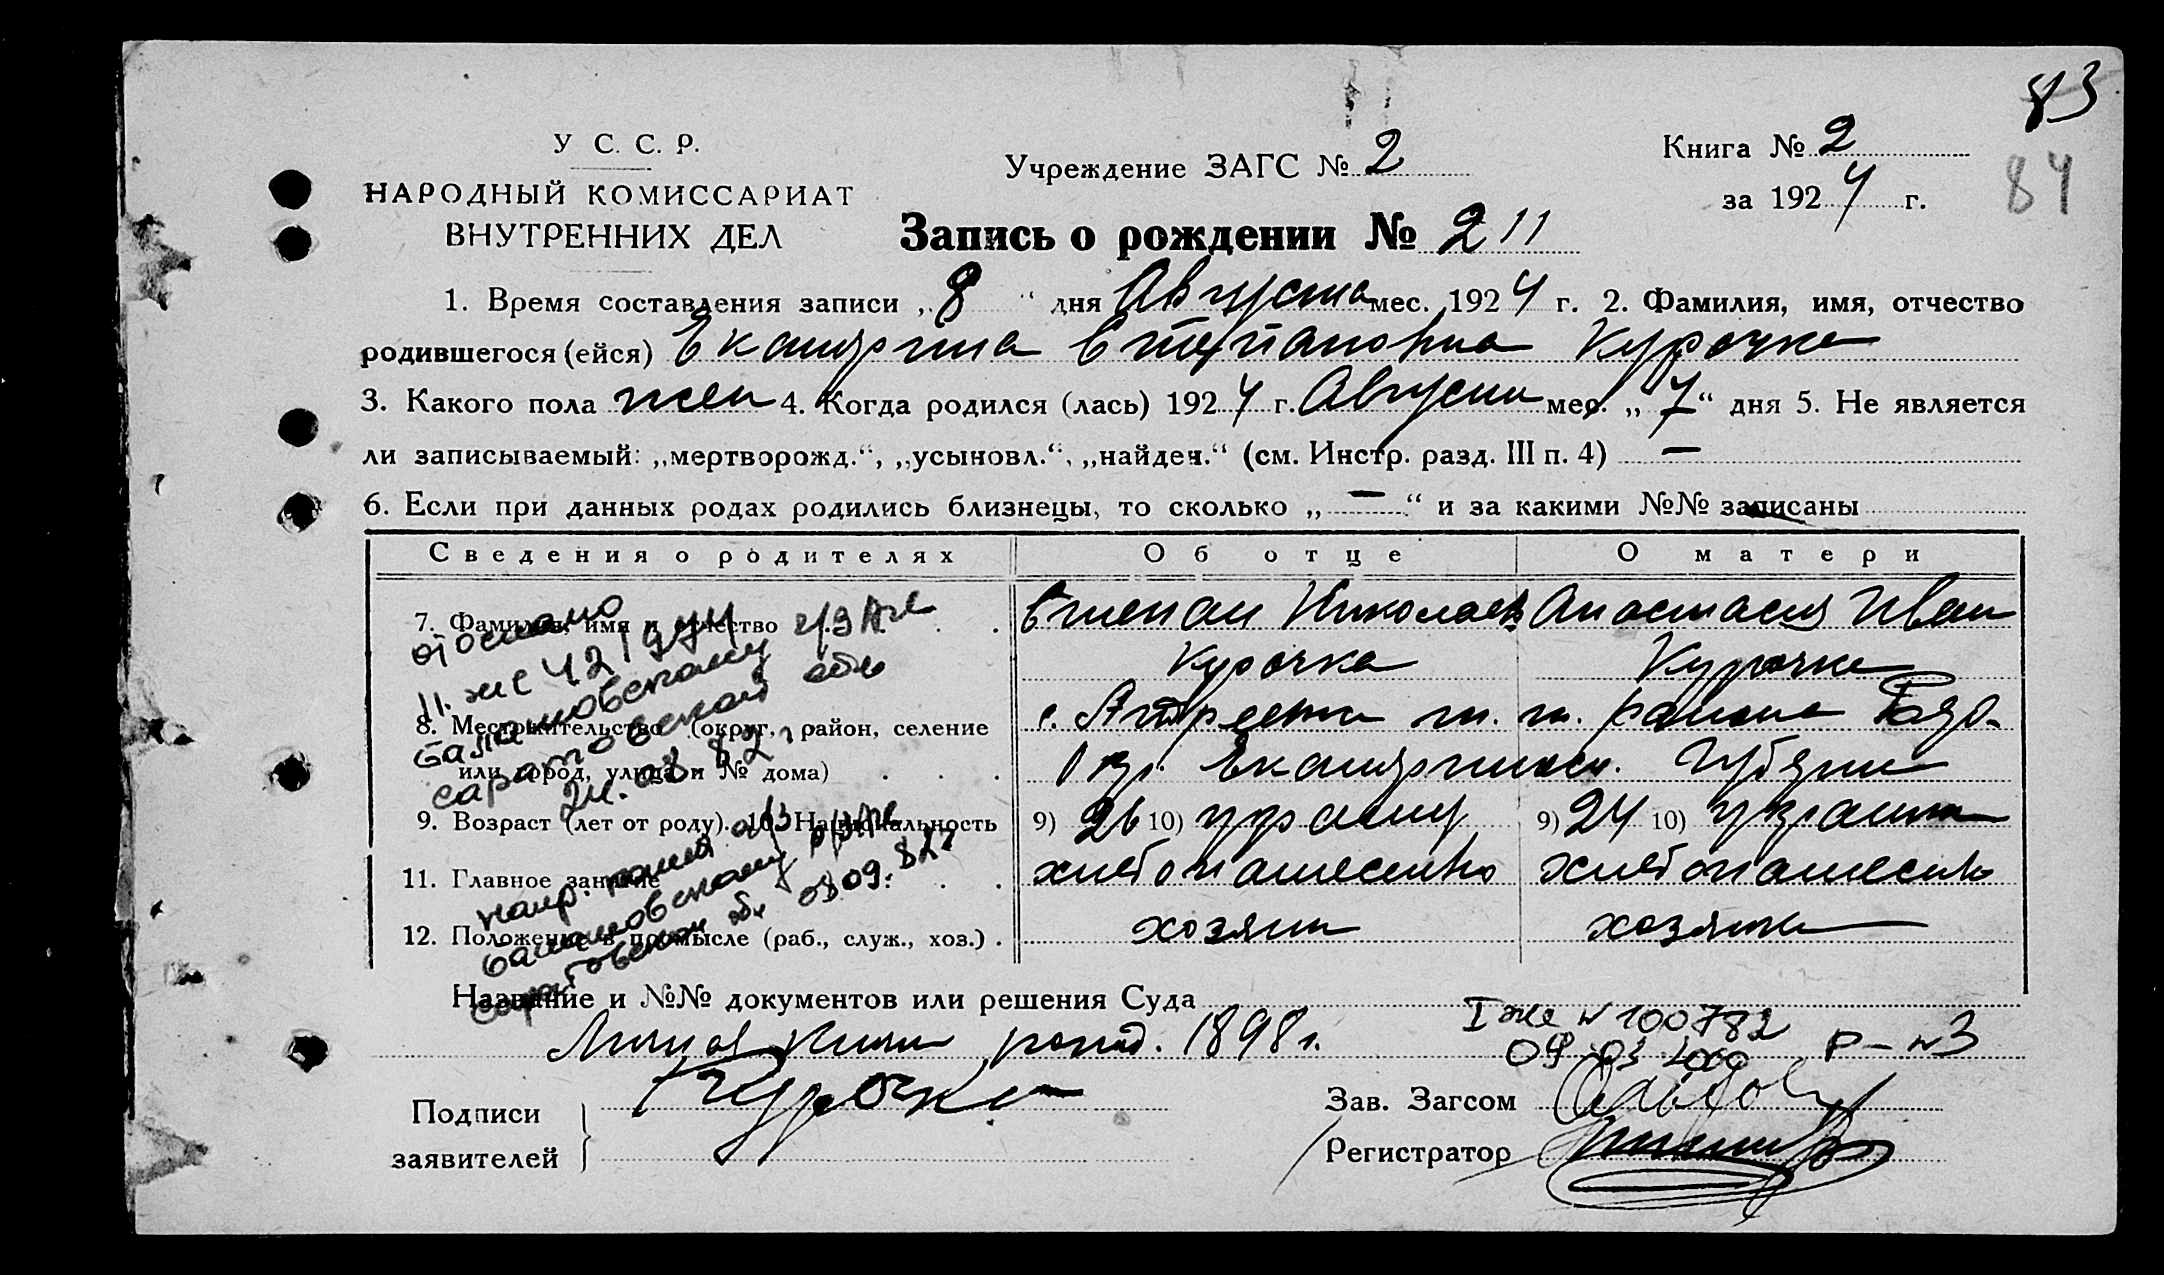 83
84
У С. С. Р.
НАРОДНЫЙ КОМИССАРИАТ
ВНУТРЕННИХ ДЕЛ
Учреждение ЗАГС № 2
Книга № 2
за 1924 г.
Запись о рождении № 211
1. Время составления записи „8“ дня Августа мес. 1924 г. 2. Фамилия, имя, отчество
родившегося (ейся) Екатерина Степановна Курочка
3. Какого пола жен 4. Когда родился (лась) 1924 г. Августа мес. „7“ дня 5. Не является
ли записываемый: „мертворожд.“, „усыновл.“, „найден.“ (см. Инстр. разд. III п. 4) —
6. Если при данных родах родились близнецы, то сколько „—“ и за какими №№ записаны
Сведения о родителях Об отце О матери
7. Фамилия, имя и отчество Степан Николаев Анастасия Иван
Курочка Курочка
8. Местожительство (округ, район, селение с. района
или город, улица и № дома) Екатериносл. Губернии
9. Возраст (лет от роду). 10. Национальность 9) 26 10) 9) 24 10)
11. Главное занятие хлебопашество хлебопашество
12. Положение в промысле (раб., служ., хоз.) хозяин хозяйка
отослано
Балашовскому
Саратовской обл
24. 08 82
Балашовскому
Саратовской 08 09. 82
Название и №№ документов или решения Суда
1898 г.
I же № 100782
Подписи
заявителей
Курочка
Зав. Загсом
Регистратор